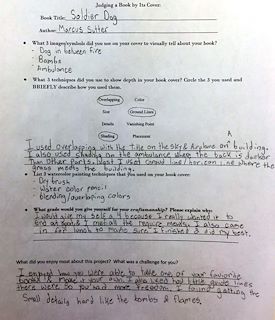 Judging a Book by Its Cover:
Book Title: Soldier Dog
Author: Marcus Sutter
• What 3 images/symbols did you use on your cover to visually tell about your book?
- Dog in between fire
- Bombs
- Ambulance
• What 3 techniques did you use to show depth in your book cover? Circle the 3 you used and
BRIEFLY describe how you used them.
Overlapping Color
Size Ground Lines
Details Vanishing Point
Shading Placement
I used overlapping with the title on the sky & Airplane on building.
I also used shading on the ambulance where the back is darker
than other parts. Last I used ground line/horizon line where the
grass meets the building.
• List 3 watercolor painting techniques that you used on your book cover:
- Dry brush
- Water color pencil
- blending/overlaping colors
• What grade would you give yourself for your craftsmanship? Please explain why:
I would give my self a 4 because I really wanted it to
be at and I met all the require ments. I also came
in for lunch to make sure I finished & did my best.
What did you enjoy most about this project? What was a challenge for you?
I enjoyed how you were able to take one of your favorite
books & make it your own. I also liked how little guide lines
there were so you had more freedom. I found getting the
Small details hard like the bombs & flames.